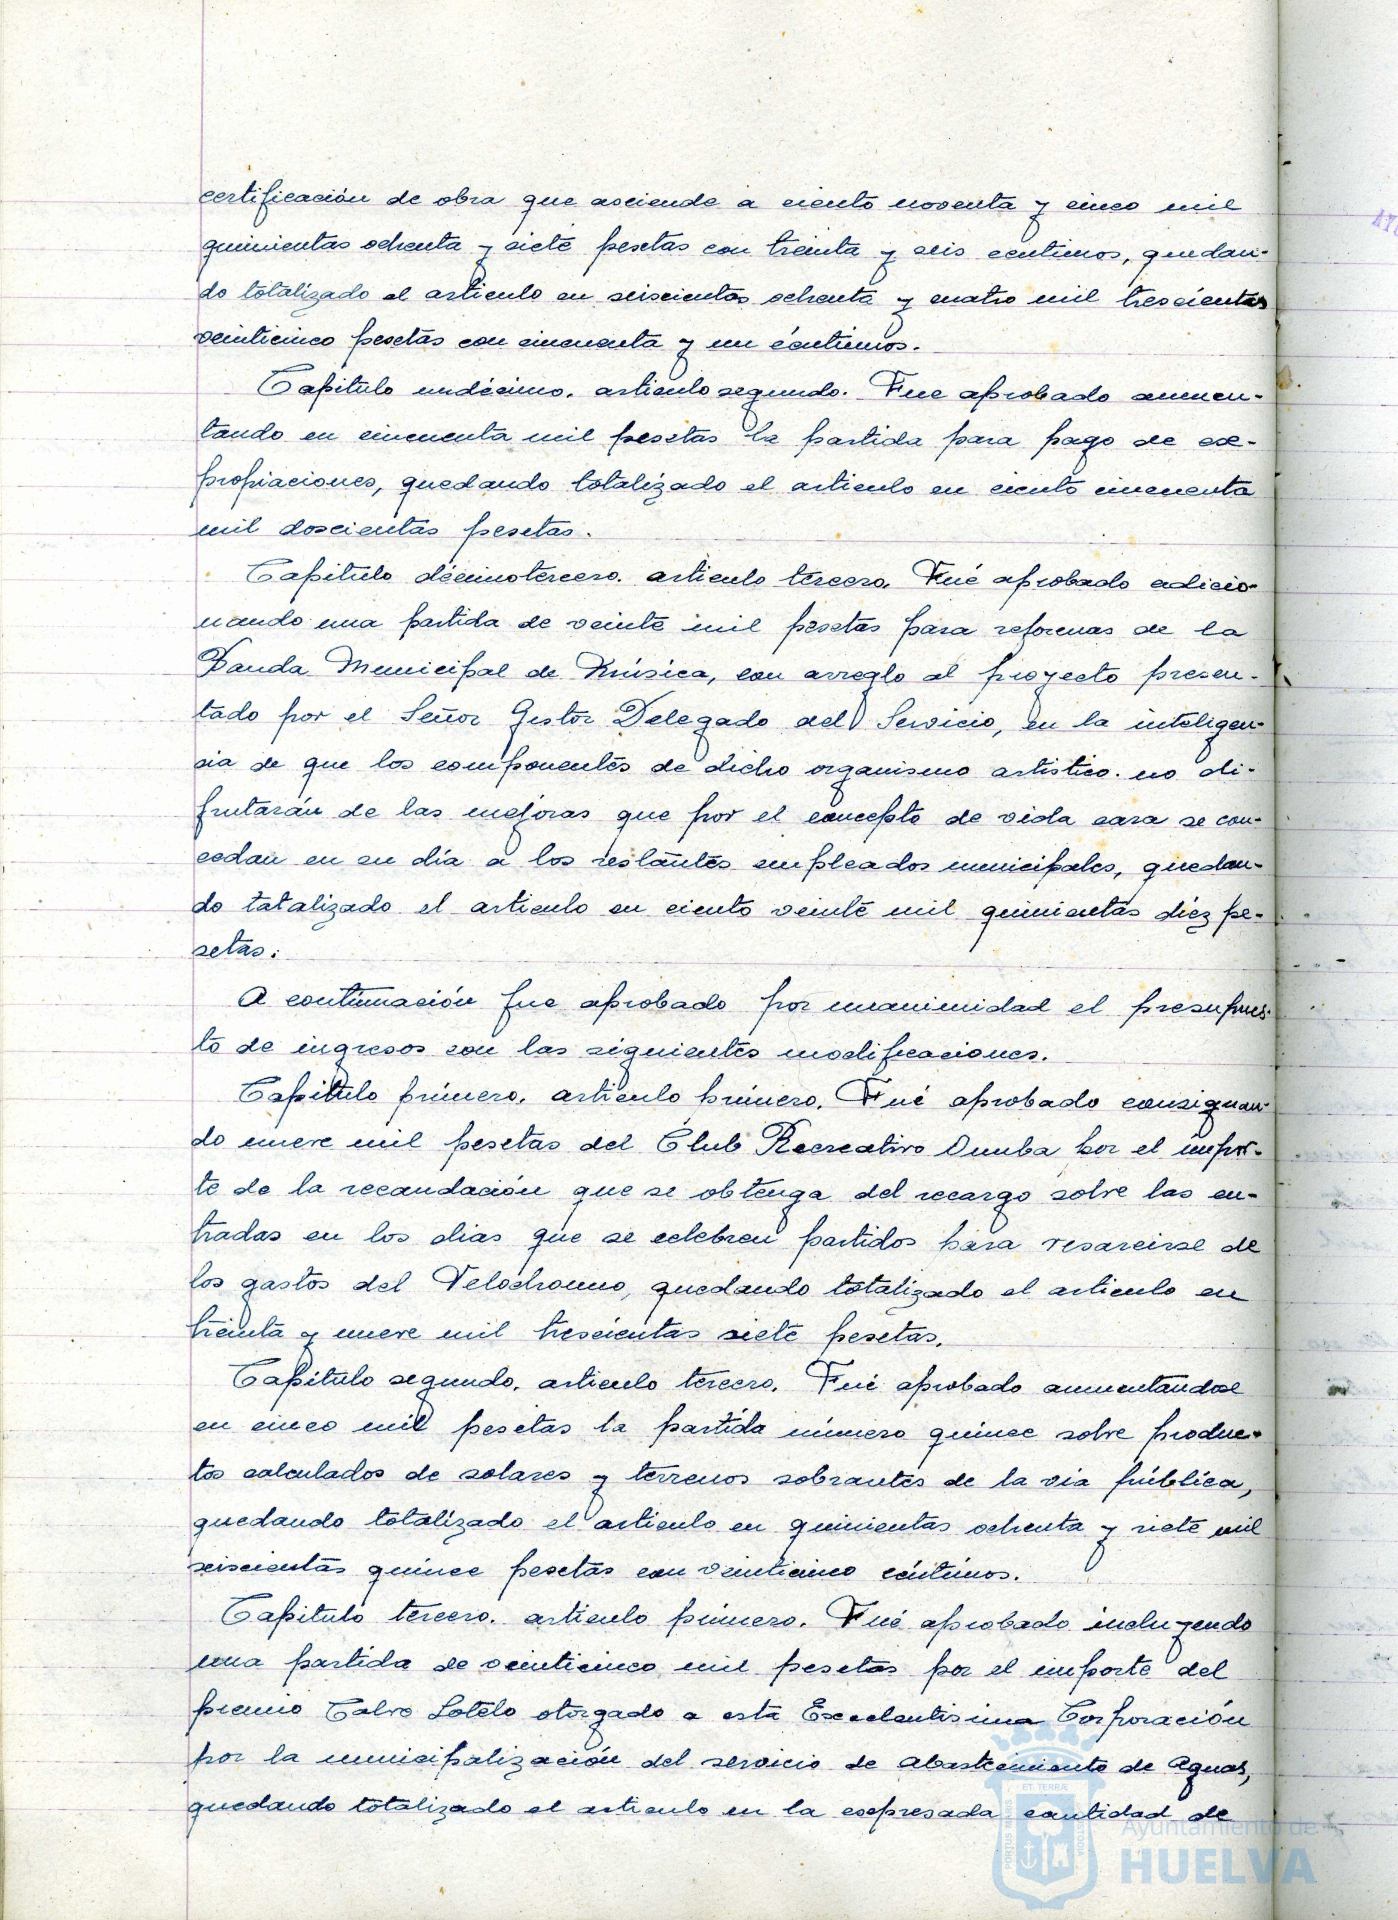 certificación de obra que asciende a ciento noventa y cinco mil
quinientas ochenta y siete pesetas con treinta y seis centimos, quedan-
do totalizado el articulo en seiscientas ochenta y cuatro mil trescientas
veinticinco pesetas con cincuenta y un céntimos.
Capitulo undécimo. articulo segundo. Fue aprobado aumen-
tando en cincuenta mil pesetas la partida para pago de ex-
propiaciones, quedando totalizado el articulo en ciento cincuenta
mil doscientas pesetas.
Capitulo décimotercero. articulo tercero. Fué aprobado adicio-
nando una partida de veinte mil pesetas para reformas de la
Banda Municipal de Música, con arreglo al proyecto presen-
tado por el Señor Gestor Delegado del Servicio, en la inteligen-
cia de que los componentes de dicho organismo artistico. no di-
frutarán de las mejoras que por el concepto de vida cara se con-
cedan en su día a los restantes empleados municipales, quedan-
do tatalizado el articulo en ciento veinte mil quinientas diez pe-
setas.
A continuación fue aprobado por unanimidad el presupues-
to de ingresos con las siguientes modificaciones.
Capitulo primero. articulo primero. Fué aprobado consignan-
do nueve mil pesetas del Club Recreativo Onuba por el impor-
te de la recaudación que se obtenga del recargo sobre las en-
tradas en los dias que se celebren partidos para resarcirse de
los gastos del Velodromo, quedando totalizado el articulo en
treinta y nueve mil trescientas siete pesetas.
Capitulo segundo. articulo tercero. Fué aprobado aumentandose
en cinco mil pesetas la partida número quince sobre produc-
tos calculados de solares y terrenos sobrantes de la via pública,
quedando totalizado el articulo en quinientas ochenta y siete mil
seiscientas quince pesetas con veinticinco céntimos.
Capitulo tercero. articulo primero. Fué aprobado incluyendo
una partida de veinticinco mil pesetas por el importe del
premio Calvo Sotelo otorgado a esta Excelentisima Corporación
por la municipalización del servicio de abastecimiento de Aguas,
quedando totalizado el articulo en la expresada cantidad de
PORTUS MARIS ET TERRÆ CUSTODIA
Ayuntamiento de
HUELVA